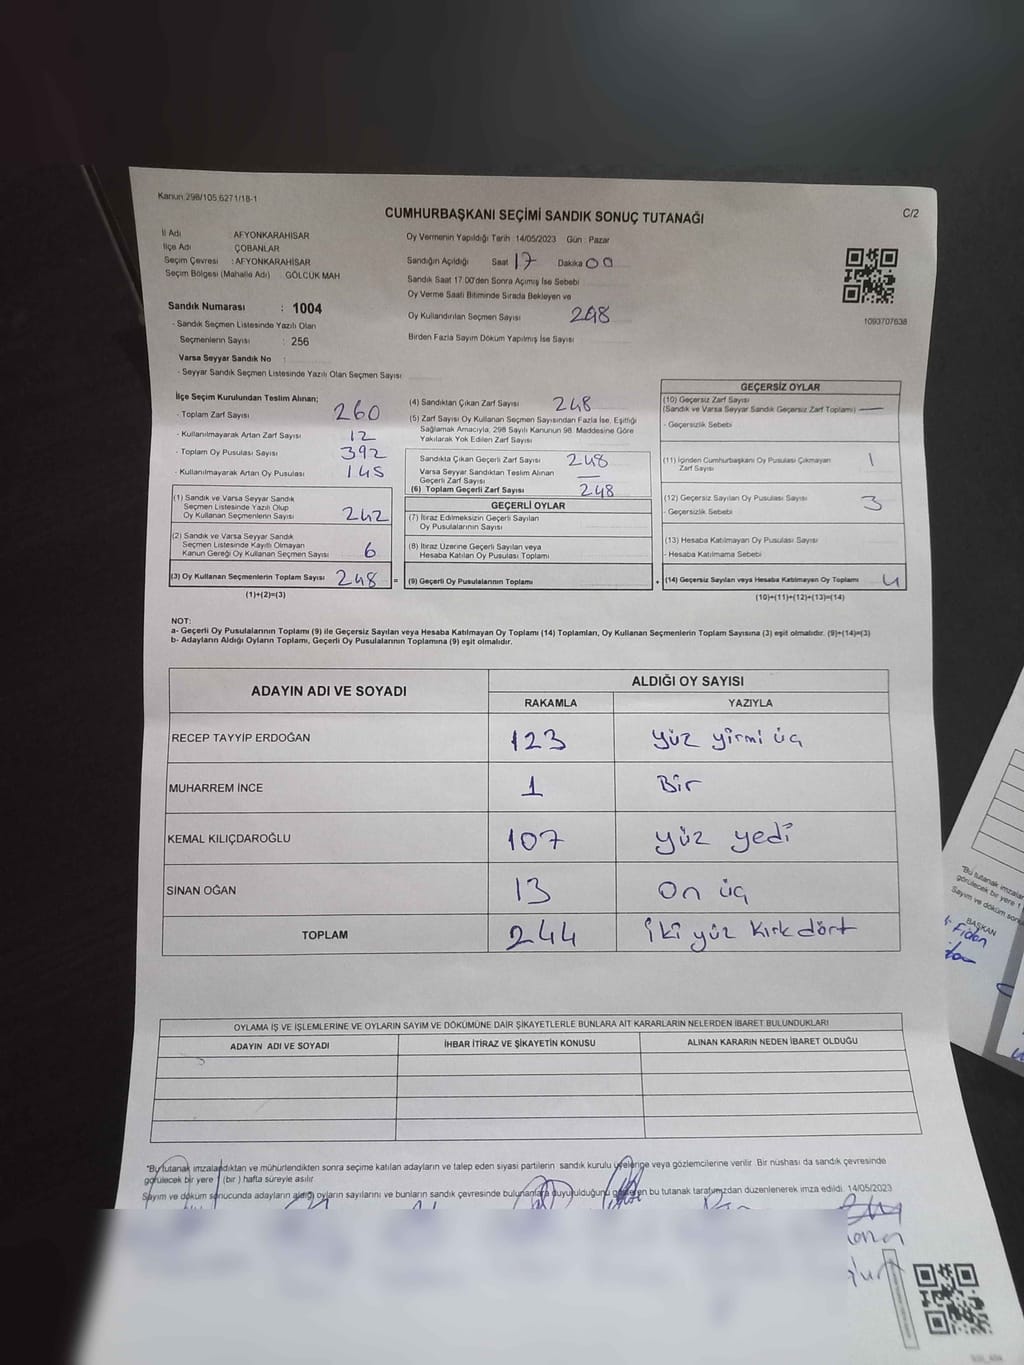 Kanun.298/105,6271/18-1
CUMHURBAŞKANI SEÇİMİ SANDIK SONUÇ TUTANAĞI
C/2
İl Adı AFYONKARAHİSAR
İlçe Adı ÇOBANLAR
Seçim Çevresi : AFYONKARAHİSAR
Seçim Bölgesi (Mahalle Adı) : GÖLCÜK MAH
Oy Vermenin Yapıldığı Tarih 14/05/2023 Gün : Pazar
Sandığın Açıldığı Saat 17 Dakika 00
Sandık Saat 17.00'den Sonra Açımış İse Sebebi
Oy Verme Saati Bitiminde Sırada Bekleyen ve
Oy Kullandırılan Seçmen Sayısı 248
Birden Fazla Sayım Döküm Yapılmış İse Sayısı
1093707638
Sandık Numarası : 1004
- Sandık Seçmen Listesinde Yazılı Olan
Seçmenlerin Sayısı : 256
Varsa Seyyar Sandık No :
- Seyyar Sandık Seçmen Listesinde Yazılı Olan Seçmen Sayısı
İlçe Seçim Kurulundan Teslim Alınan;
- Toplam Zarf Sayısı 260
- Kullanılmayarak Artan Zarf Sayısı 12
- Toplam Oy Pusulası Sayısı 392
- Kullanılmayarak Artan Oy Pusulası 145
(1) Sandık ve Varsa Seyyar Sandık
Seçmen Listesinde Yazılı Olup
Oy Kullanan Seçmenlerin Sayısı 242
(2) Sandık ve Varsa Seyyar Sandık
Seçmen Listesinde Kayıtlı Olmayan
Kanun Gereği Oy Kullanan Seçmen Sayısı 6
(3) Oy Kullanan Seçmenlerin Toplam Sayısı 248 =
(1)+(2)=(3)
(4) Sandıktan Çıkan Zarf Sayısı 248
(5) Zarf Sayısı Oy Kullanan Seçmen Sayısından Fazla İse, Eşitliği
Sağlamak Amacıyla; 298 Sayılı Kanunun 98. Maddesine Göre
Yakılarak Yok Edilen Zarf Sayısı
Sandıkta Çıkan Geçerli Zarf Sayısı 248
Varsa Seyyar Sandıktan Teslim Alınan
Geçerli Zarf Sayısı —
(6) Toplam Geçerli Zarf Sayısı 248
GEÇERLİ OYLAR
(7) İtiraz Edilmeksizin Geçerli Sayılan
Oy Pusulalarının Sayısı
(8) İtiraz Üzerine Geçerli Sayılan veya
Hesaba Katılan Oy Pusulası Toplamı
(9) Geçerli Oy Pusulalarının Toplamı +
GEÇERSİZ OYLAR
(10) Geçersiz Zarf Sayısı
(Sandık ve Varsa Seyyar Sandık Geçersiz Zarf Toplamı) —
- Geçersizlik Sebebi
(11) İçinden Cumhurbaşkanı Oy Pusulası Çıkmayan
Zarf Sayısı 1
(12) Geçersiz Sayılan Oy Pusulası Sayısı 3
- Geçersizlik Sebebi
(13) Hesaba Katılmayan Oy Pusulası Sayısı
- Hesaba Katılmama Sebebi
(14) Geçersiz Sayılan veya Hesaba Katılmayan Oy Toplamı 4
(10)+(11)+(12)+(13)=(14)
NOT:
a- Geçerli Oy Pusulalarının Toplamı (9) ile Geçersiz Sayılan veya Hesaba Katılmayan Oy Toplamı (14) Toplamları, Oy Kullanan Seçmenlerin Toplam Sayısına (3) eşit olmalıdır. (9)+(14)=(3)
b- Adayların Aldığı Oyların Toplamı, Geçerli Oy Pusulalarının Toplamına (9) eşit olmalıdır.
ADAYIN ADI VE SOYADI ALDIĞI OY SAYISI
RAKAMLA YAZIYLA
RECEP TAYYİP ERDOĞAN 123 yüz yirmi üç
MUHARREM İNCE 1 Bir
KEMAL KILIÇDAROĞLU 107 yüz yedi
SİNAN OĞAN 13 On üç
TOPLAM 244 iki yüz kırk dört
OYLAMA İŞ VE İŞLEMLERİNE VE OYLARIN SAYIM VE DÖKÜMÜNE DAİR ŞİKAYETLERLE BUNLARA AİT KARARLARIN NELERDEN İBARET BULUNDUKLARI
ADAYIN ADI VE SOYADI İHBAR İTİRAZ VE ŞİKAYETİN KONUSU ALINAN KARARIN NEDEN İBARET OLDUĞU
"Bu tutanak imzalandıktan ve mühürlendikten sonra seçime katılan adayların ve talep eden siyasi partilerin sandık kurulu üyelerine veya gözlemcilerine verilir. Bir nüshası da sandık çevresinde
görülecek bir yere 1 (bir ) hafta süreyle asılır
Sayım ve döküm sonucunda adayların aldığı oyların sayılarını ve bunların sandık çevresinde bulunanlara duyulduğunu gösteren bu tutanak tarafımızdan düzenlenerek imza edildi. 14/05/2023
"Bu tutanak imzalan
görülecek bir yere 1
Sayım ve döküm son
BAŞKAN
Fidan